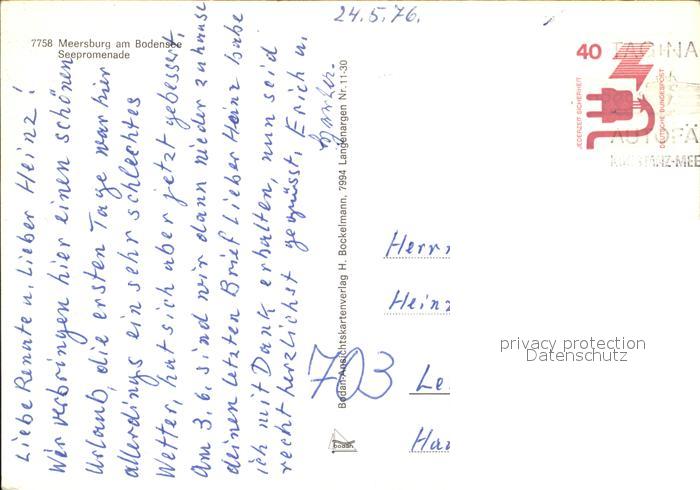 24.5.76.
7758 Meersburg am Bodensee
Seepromenade
Liebe Renate u. Lieber Heinz!
Wir verbringen hier einen schönen
Urlaub, die ersten Tage war hier
allerdings ein sehr schlechtes
Wetter, hat sich aber jetzt gebessert.
Am 3.6. sind wir dann wieder zuhause
deinen letzten Brief lieber Heinz habe
ich mit Dank erhalten, nun seid
recht herzlichst gegrüsst. Erich u.
Bodan-Ansichtskartenverlag H. Bockelmann, 7994 Langenargen Nr. 11-30
bodan
40
JEDERZEIT SICHERHEIT
DEUTSCHE BUNDESPOST
AUTOFÄ
Herrn
Heinz
703 Le
privacy protection
Datenschutz